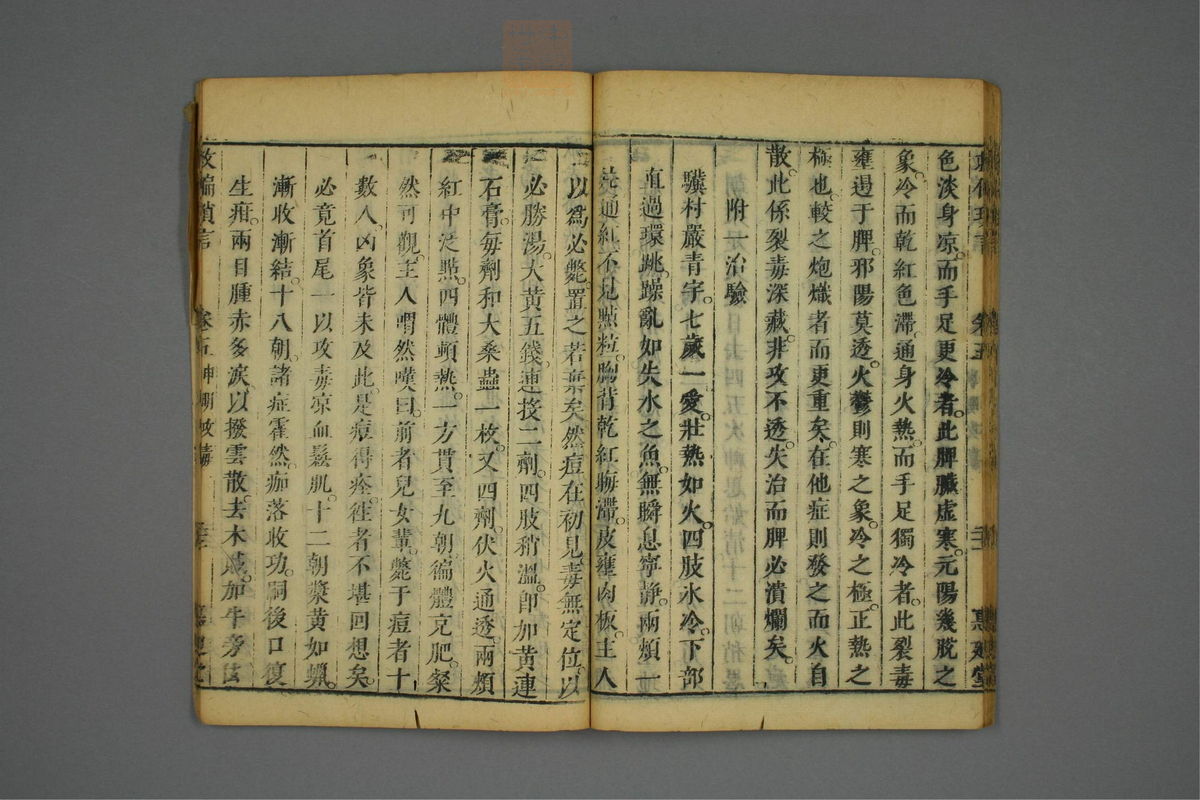 色淡身凉。而手足更冷者。此脾臟虚寒。元陽幾脫之
象。冷而乾紅色滯。通身火熱。而手足獨冷者。此裂毒
壅遏于脾。邪陽莫透。火鬱則寒之象。冷之極。正熱之
極也。較之炮熾者而更重矣。在他症則發之而火自
散。此係裂毒深藏。非攻不透。失治而脾必潰爛矣。
附一治驗
驥村嚴青宇。七歲一愛。壯熱如火。四肢氷冷。下部
直過環跳。躁亂如失水之魚。無瞬息寧靜。兩頰一
通紅。不見點粒。胸背乾紅晦滯。皮壅肉板。主人
以爲必斃。置之若棄矣。然痘在初見。毒無定位。以
必勝湯。大黃五錢。連投二劑。四肢稍溫。卽加黃連
石膏。每劑和大桑蟲一枚。又四劑。伏火通透。兩頰
紅中泛點。四體頓熱。一方貫至九朝。徧體充肥。粲
然可觀。主人喟然嘆曰。前者兒女輩。斃于痘者十
數人。凶象皆未及此。是痘得痊。徃者不堪回想矣。
必竟首尾一以攻毒凉血鬆肌。十二朝漿黃如蠟。
漸收漸結。十八朝。諸症霍然。痂落收功。嗣後口復
生疳。兩目腫赤多淚。以撥雲散。去木賊。加牛旁